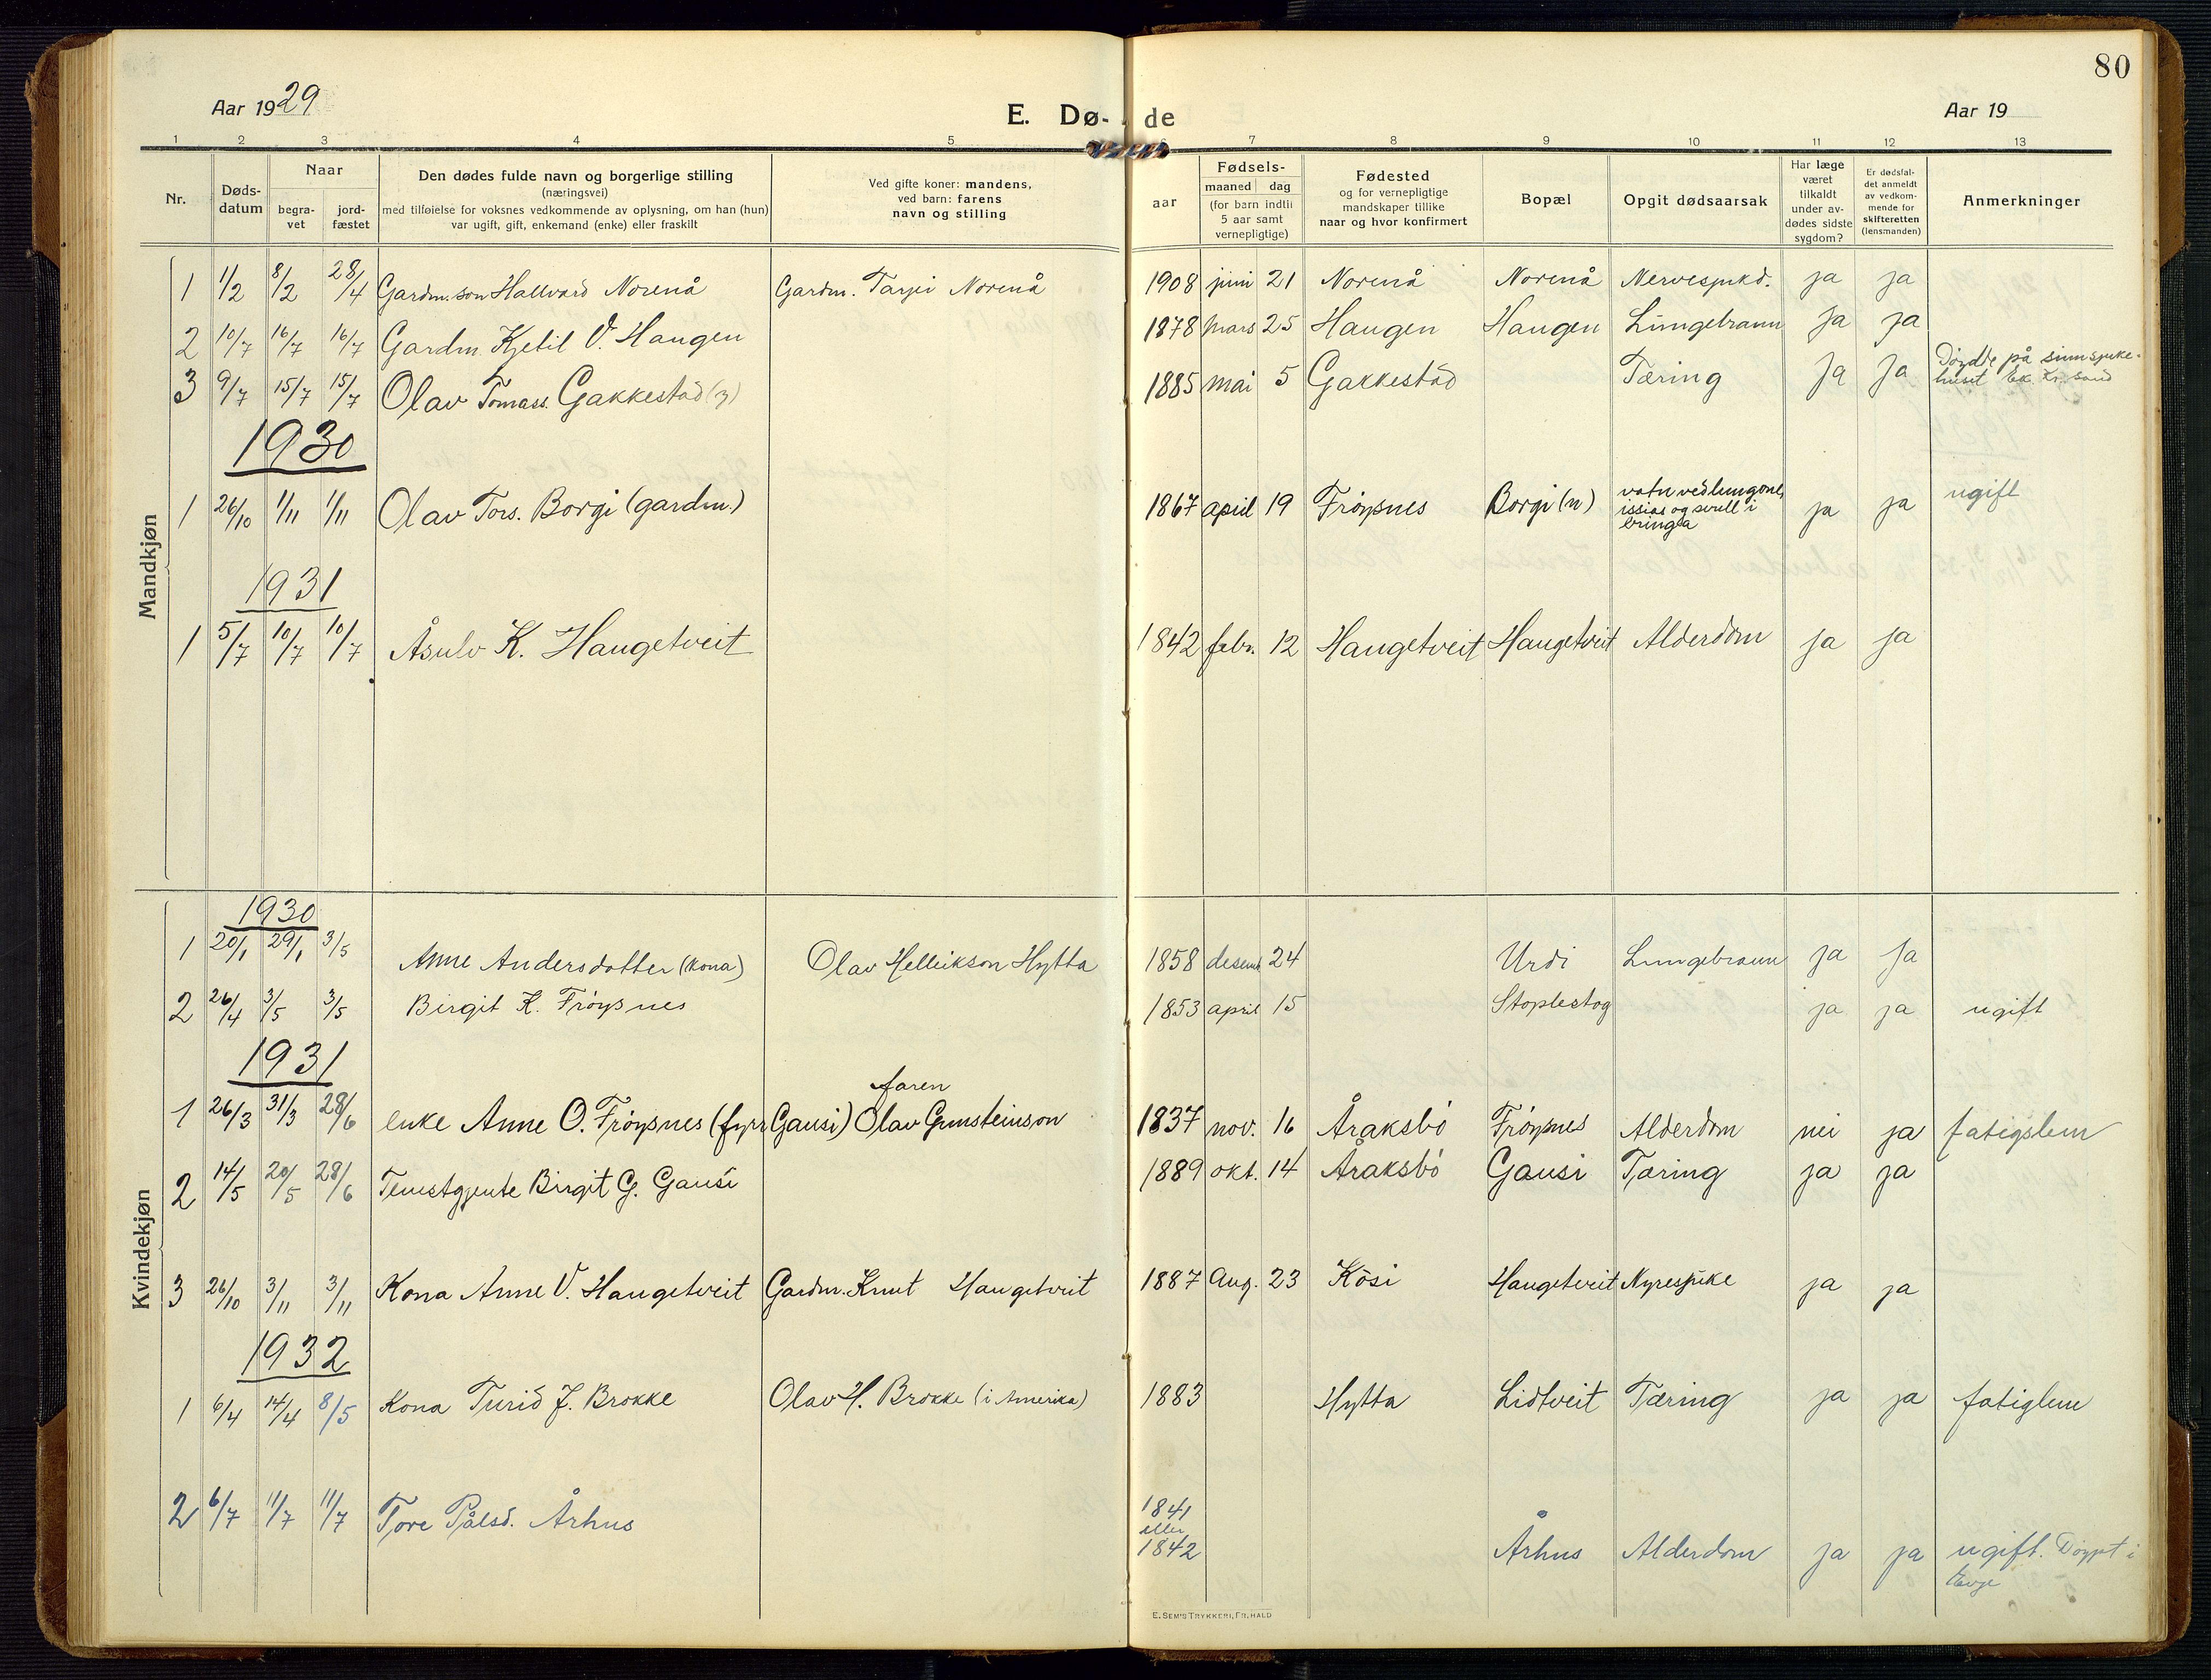 80
Aar 1929
E. Dø- de
Aar 19
1 2 3 4 5 7 8 9 10 11 12 13
Nr.
Døds-
datum
Naar
begra-
vet
jord-
fæstet
Den dødes fulde navn og borgerlige stilling
(næringsvei)
med tilføielse for voksnes vedkommende av oplysning, om han (hun)
var ugift, gift, enkemand (enke) eller fraskilt
Ved gifte koner: mandens,
ved barn: farens
navn og stilling
Fødsels-
aar
maaned dag
(for barn indtil
5 aar samt
vernepligtige)
Fødested
og for vernepligtige
mandskaper tillike
naar og hvor konfirmert
Bopæl
Opgit dødsaarsak
Har læge
været
tilkaldt
under av-
dødes sidste
sygdom?
Er dødsfal-
det anmeldt
av vedkom-
mende for
skifteretten
(lensmanden)
Anmerkninger
Mandkjøn
1 1/2 8/2 28/4 Gardm.son Hallvard Norenå Gardm. Tarjei Norenå 1908 juni 21 Norenå Norenå Nervesjukd. ja ja
2 10/7 16/7 16/7 Gardm. Kjetil V. Haugen 1878 mars 25 Haugen Haugen Lungebrann Ja ja
3 9/7 15/7 15/7 Olav Tomass. Gakkestad 1885 mai 5 Gakkestad Tæring Ja Ja Döydde på sinnsjuke-
huset Kr.sand
1930
1 26/10 1/11 1/11 Olav Tors. Borgi (gardm.) 1867 april 19 Fröysnes Borgi (n) vatn ved lungone,
issias og svull i
bringa ja ja ugift
1931
1 5/7 10/7 10/7 Åsulv K. Haugetveit 1842 febr. 12 Haugetveit Haugetveit Alderdom ja ja
Kvindekjøn
1930
1 20/1 29/1 3/5 Anne Andersdotter (kona) Olav Hellikson Hytta 1858 desemb 24 Urdi Lungebrann ja Ja
2 26/4 3/5 3/5 Birgit K. Fröysnes 1853 april 15 Stoplestog ja ja ugift
1931
faren
1 26/3 31/3 28/6 enke Anne O. Fröysnes (fyrr Gausi) Olav Gunsteinson 1837 nov. 16 Åraksbö Fröysnes Alderdom nei ja fatigslem
2 14/5 20/5 28/6 Tenestgjente Birgit G. Gausi 1889 okt. 14 Åraksbö Gausi Tæring ja ja
3 26/10 3/11 3/11 Kona Anne V. Haugetveit Gardm. Knut Haugetveit 1887 Aug. 23 Kösi Haugetveit Nyresjuke ja ja
1932
1 6/4 14/4 8/5 Kona Turid J. Brokke Olav H. Brokke (i Amerika) 1883 Hytta Lidtveit Tæring ja ja fatiglem
2 6/7 11/7 11/7 Tore Pålsd. Århus 1841
eller
1842 Århus Alderdom ja ja ugift. Döypt i
Evje
E. SEM'S TRYKKERI, FR.HALD